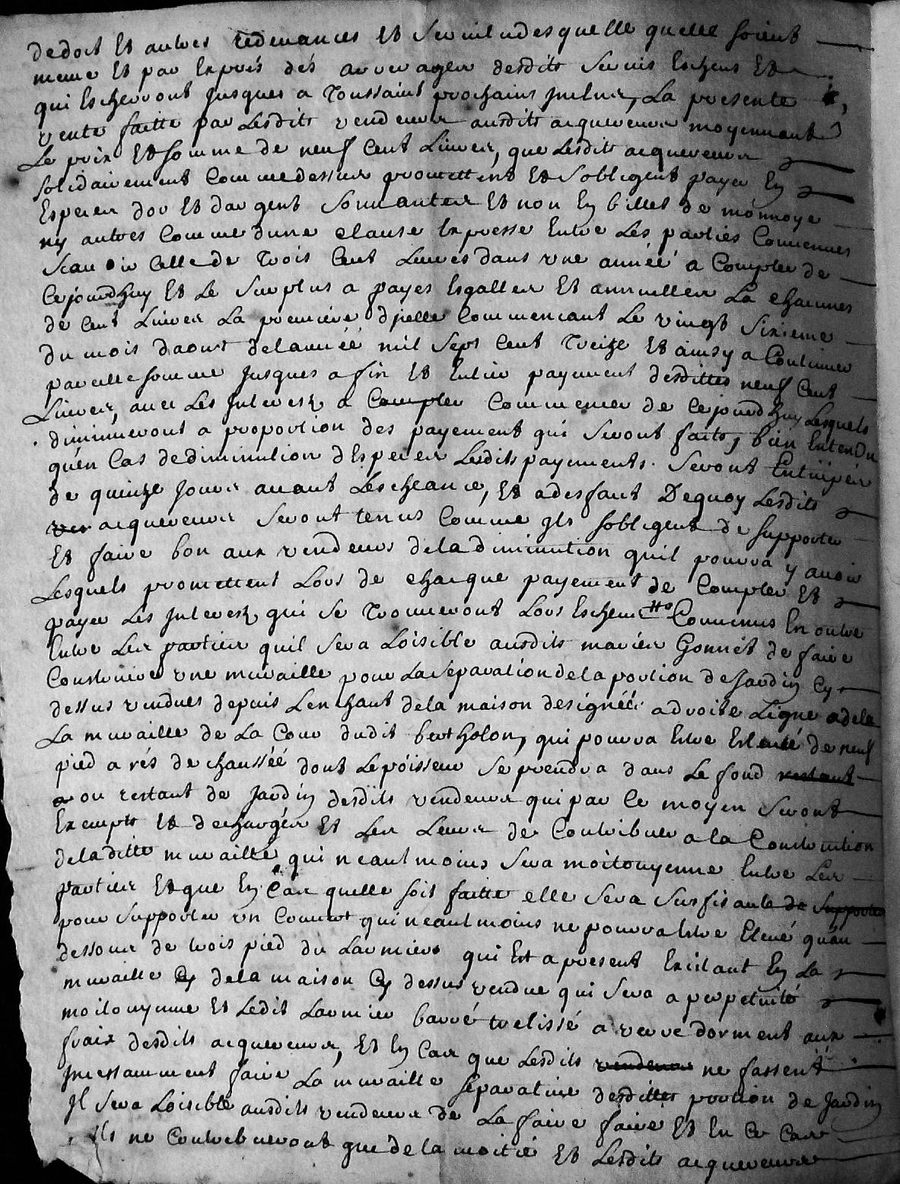 dedoit Et autres redevances Et Servitudes quelle quelle soient
meme Et par Exprés des arrerages desdits Servis Escheus Et
qui Escherront Jusques a Toussaint prochains Inclus, La presente
vente faitte par Lesdits vendeurs ausdits acquereurs moyennant
Le prix Et somme de neuf Cent Livres, que Lesdits acquereurs
solidairement Comme dessus promettent Et Sobligent payer En
Especes dor Et dargent Sonnantes Et non En billets de monnoye
ny autres Comme dune clause Expresse Entre Les parties Convenues
Scavoir Celle de Trois Cent Livres dans une année a Compter de
Cejourdhuy Et Le Surplus a payes Esgalles Et annuelles La chacunes
de Cent Livres La premiere dJcelle Commencant Le vingt Sixieme
du mois daoust delannée mil Sept Cent Treize Et ainsy a Continuer
pareille somme Jusques a fin Et Entier payement desdittes neuf Cent
Livres, avec Les Interests a Compter Commencer de Cejourdhuy Lesquels
diminueront a proportion des payement qui Seront faits, bien Entendu
qu'en Cas de diminution dEspeces Lesdits payements Seront Entiers
de quinze Jours avant Lescheance, Et a deffaut Dequoy Lesdits
acquereurs Seront tenus Comme Jls sobligent de supporter
Et faire bon aux vendeurs dela diminution quil pourra y avoir
Lesquels promettent Lors de chacque payement de Compter Et
payer Les Interests qui Se Trouveront Lors Escheus Convenus En outre
Entre Les parties quil Sera Loisible ausdits mariés Gonnet de faire
Construire une muraille pour La Separation de la portion de Jardin Cy
dessus vendues depuis Lenchant dela maison designéé a droite Ligne a dela
La muraille de La Cour dudit bertholon, qui pourra Estre Eslevée de neuf
pied a rés de chausséé dont Lepoisseur Se prendra dans Le fond restant
ou restant de Jardin desdits vendeurs qui par Ce moyen Seront
Exempts Et dechargés Et Les Leurs de Contribuer a la Construction
deladitte muraille qui neautmoins Sera moitoyenne Entre Les
parties Et que En Cas quelle soit faitte elle Sera Suffisante de Supporter
pour Supporter un Couvert qui neautmoins ne pourra Estre Elevé qu'au
dessous de trois pied du Larmiere qui Est a present Existant En La
muraille Cy dela maison Cy dessus vendue qui Sera a perpetuité
moitoyenne Et Ledit Larmier barré trelissé a verre dorment aux
fraix desdits acquereurs, Et En Cas que Lesdits vendeurs ne fassent
Incessamment faire La muraille Separative desdittes portion de Jardin
Jl Sera Loisible ausdits vendeurs de La faire faire Et En Ce Cas
Ils ne Contribueront que dela moitié Et Lesdits acquereurs